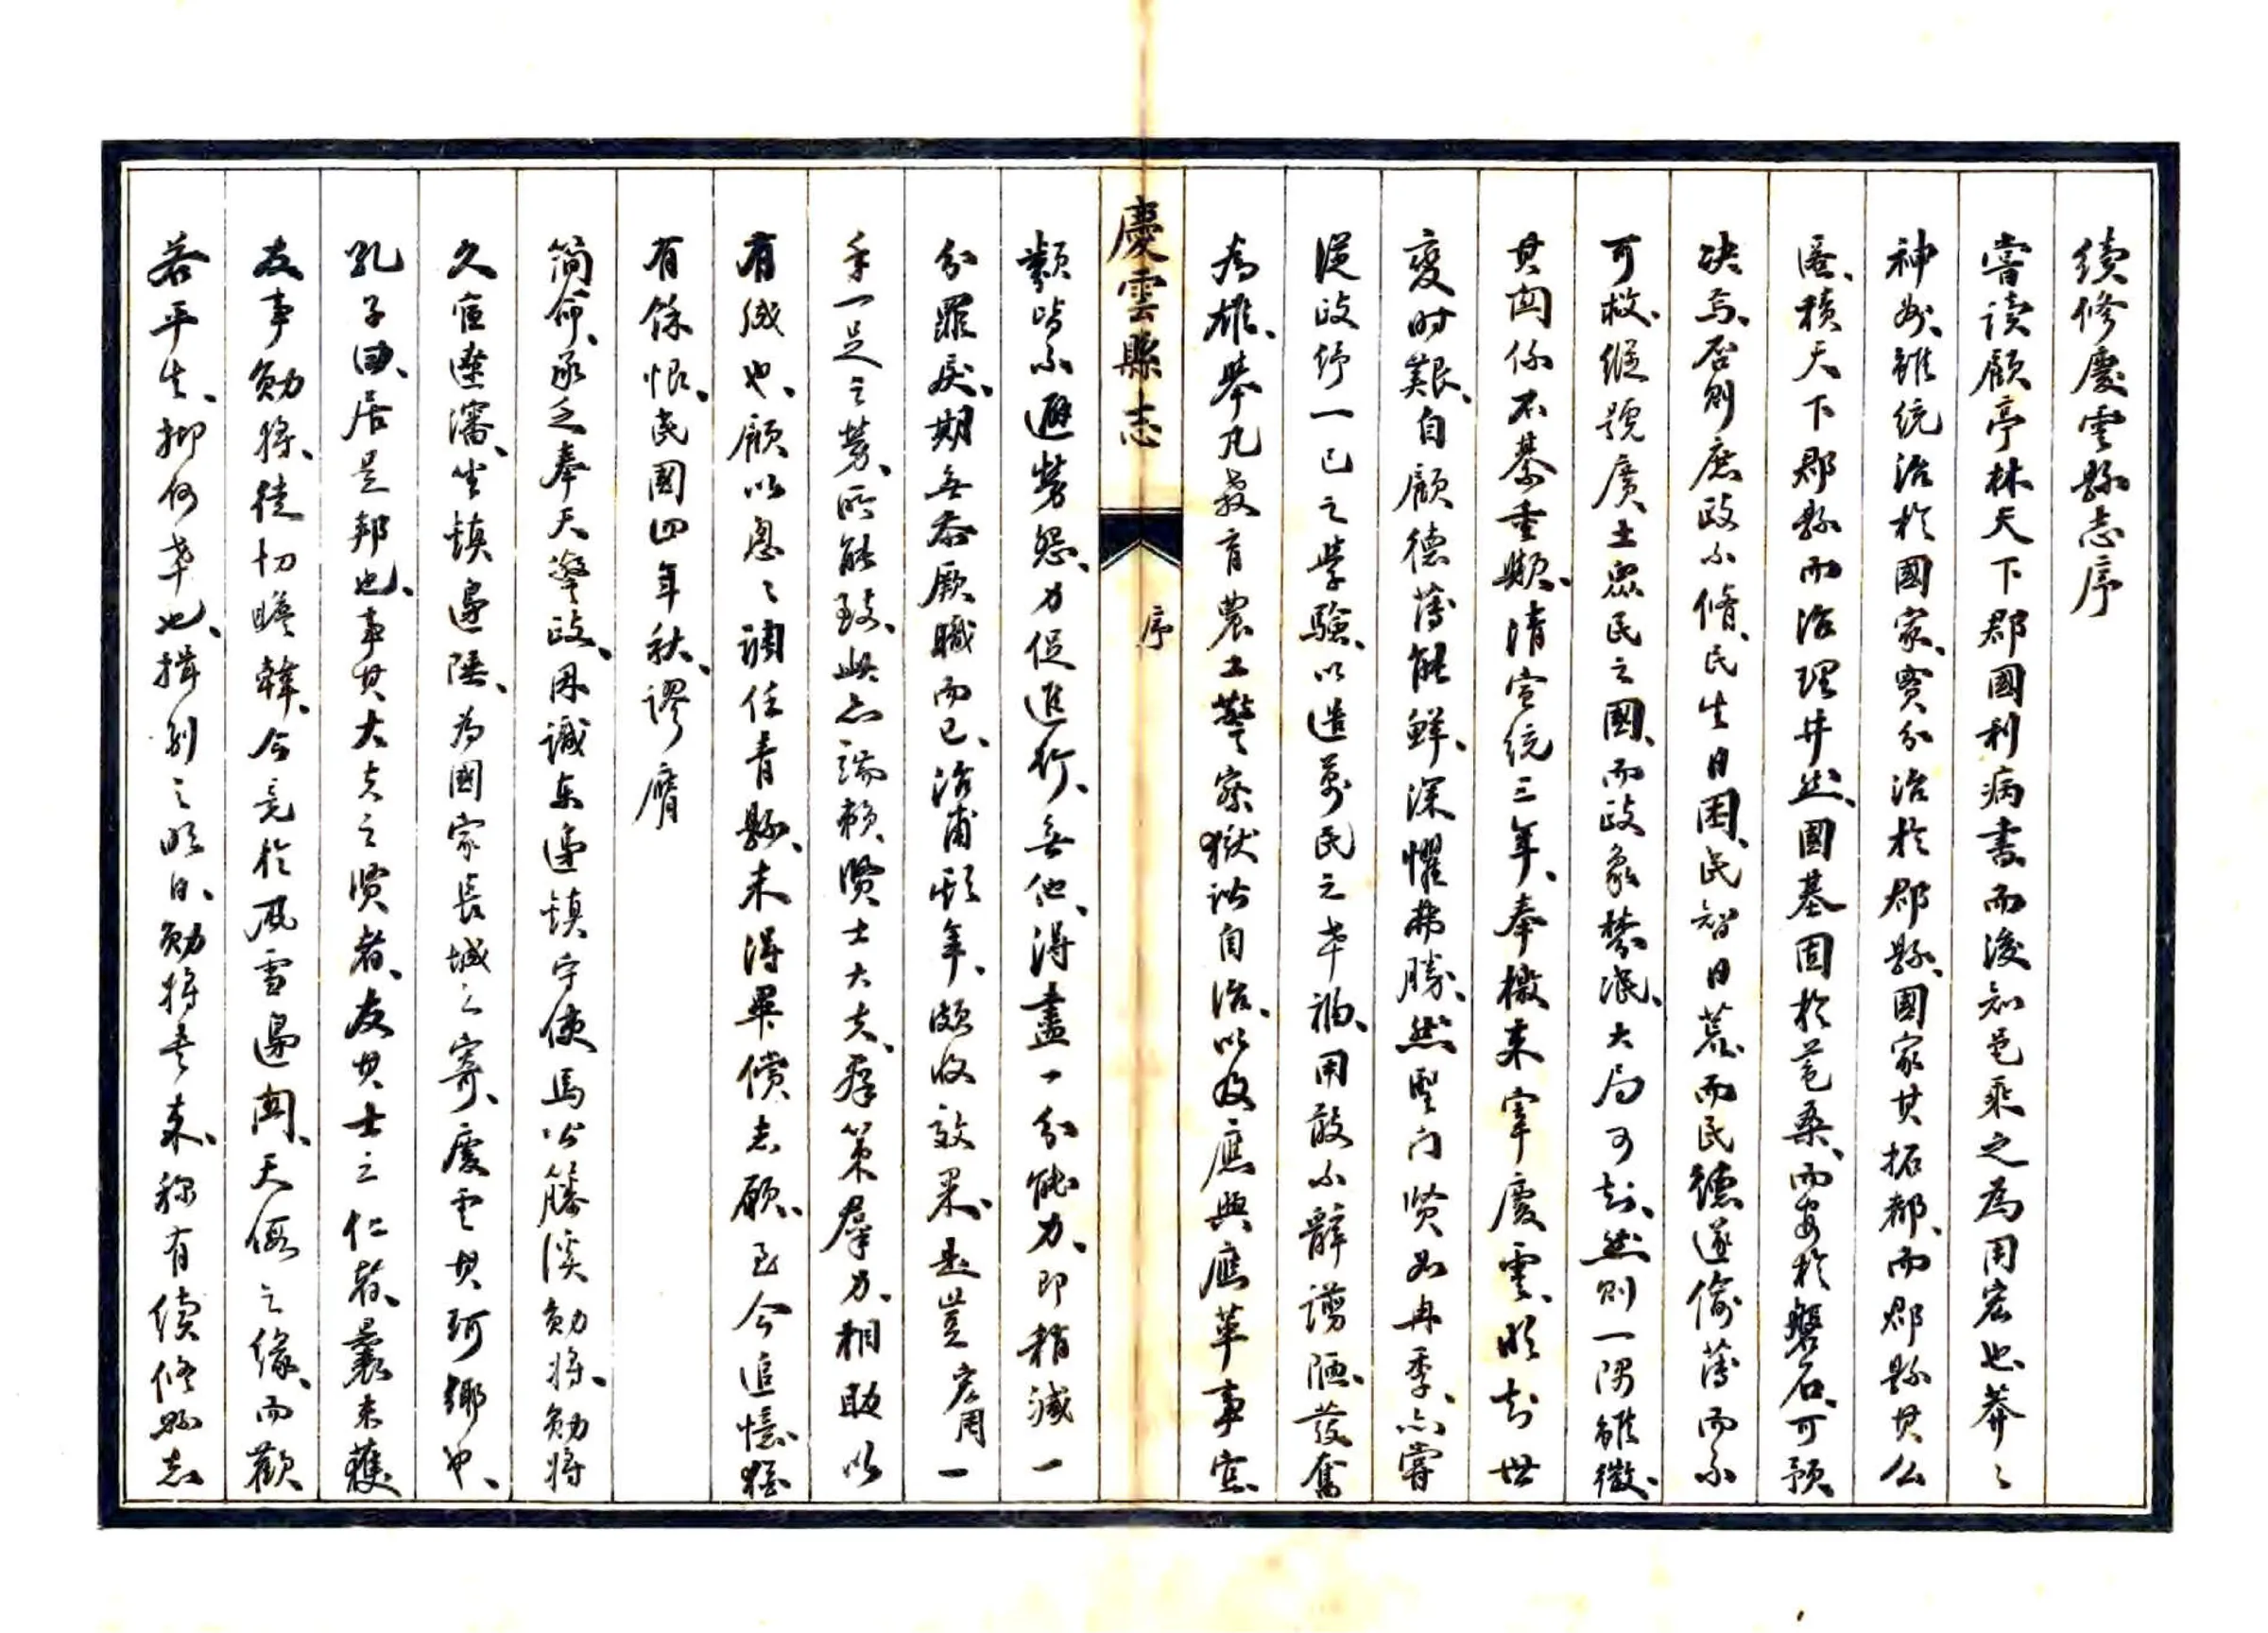 續修慶雲縣志序
嘗讀顧亭林天下郡國利病書而後知邑乘之為用宏也莽々
神州、雖統治於國家、實分治於郡縣、國家其拓都、而郡縣其么
匿、積天下郡縣而治理井然、國基固於苞桑、而安於磐石、可預
决焉、否則庶政不脩、民生日困、民智日荒、而民德遂偷薄而不
可救、縱號廣土眾民之國、而政象棼泯、大局可知、然則一隅雖微、
其関係不綦重歟、清宣統三年、奉檄来宰慶雲、明知世
變时艱、自顧德薄能鮮、深懼弗勝、然聖门贤如冉季、亦嘗
從政、紓一己之學驗、以造萬民之幸福、用敢不辭謭陋、發奮
為雄、舉凡教育農工警察獄訟自治、以及應興應革事宜
慶雲縣志 序
類皆不避勞怨、力促進行、無他、得盡一分能力、即稍減一
分罪戾、期無忝厥職而已、治甫期年、頗收效果、是豈宏周一
手一足之勞、所能致、此亦端賴賢士大夫、羣策羣力、相助以
有成也、顧以恩々調任青縣、未得畢償志願、至今追憶猶
有餘恨、民國四年秋、謬膺
簡命、承乏奉天警政、因識东邊鎮守使馬公籐溪勋將、勋將
久宦遼瀋、坐鎮邊陲、為國家長城之寄、慶雲其珂鄉也、
孔子曰、居是邦也、事其大夫之贤者、友其士之仁者、曩未獲
友事勋將、徒切瞻韓、今竟於風雪邊関、天假之緣、而歡
若平生、抑何幸也、揖别之明日、勋將書来、称有續修縣志